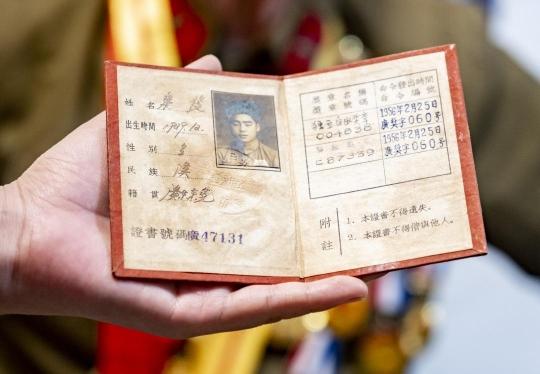 姓名
出生時間 1929.12
性別 男
民族 漢
籍貫 廣東
證書號碼廣47131
獎章名稱
獎章號碼
命令發出時間
命令編號
004838
1956年2月25日
廣獎字060號
C87339
1956年2月25日
廣獎字060號
附註
1. 本證書不得遺失。
2. 本證書不得借與他人。